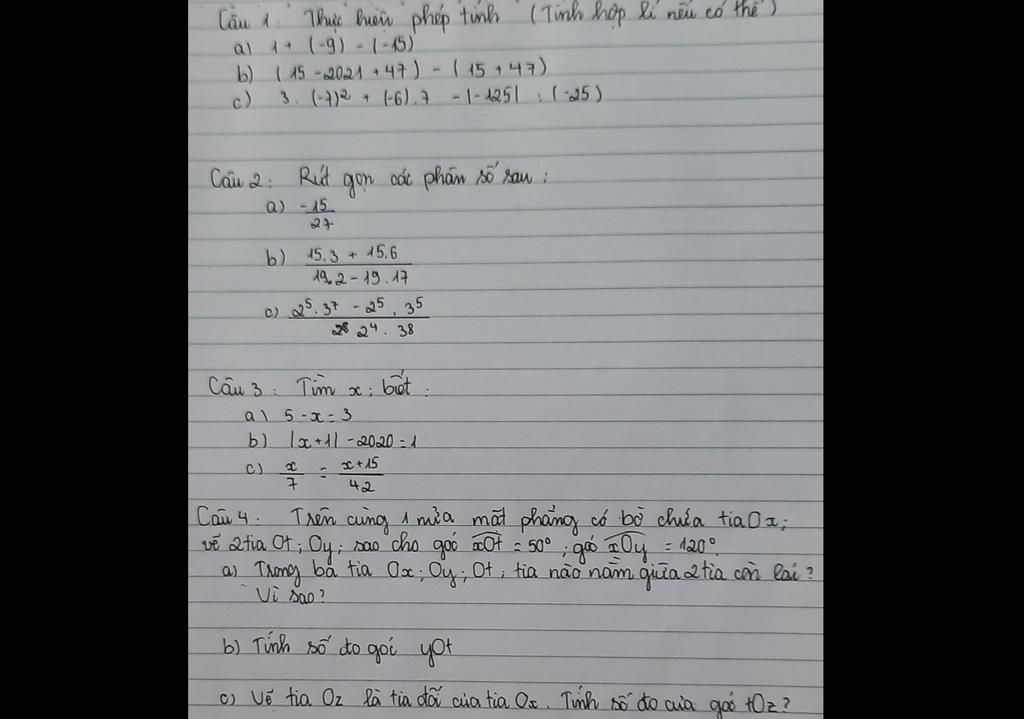 Câu 1: Thực hiện phép tính (Tính hợp lí nếu có thể)
a) 1 + (-9) - (-15)
b) (15 - 2021 + 47) - (15 + 47)
c) 3 . (-7)² + (-6) . 7 - |-125| : (-25)
Câu 2: Rút gọn các phân số sau :
a) -15/27
b) 15.3 + 15.6 / 19.2 - 19.17
c) 2⁵.3⁷ - 2⁵.3⁵ / 2⁴.38
Câu 3: Tìm x; biết :
a) 5 - x = 3
b) |x+1| - 2020 = 1
c) x/7 = x+15/42
Câu 4: Trên cùng 1 nửa mặt phẳng có bờ chứa tia Ox;
vẽ 2 tia Ot; Oy; sao cho góc xOt = 50°; góc xOy = 120°.
a) Trong ba tia Ox; Oy; Ot; tia nào nằm giữa 2 tia còn lại?
Vì sao?
b) Tính số đo góc yOt
c) Vẽ tia Oz là tia đối của tia Ox. Tính số đo của góc tOz?